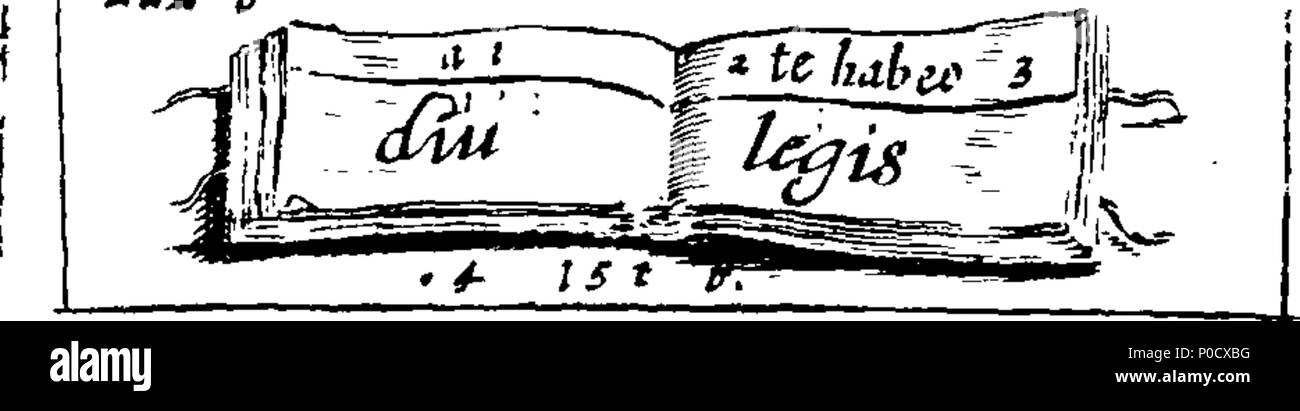 2 te habeo 3
diu legis
. 4 15 t
alamy
Image ID: P0CXBG
www.alamy.com